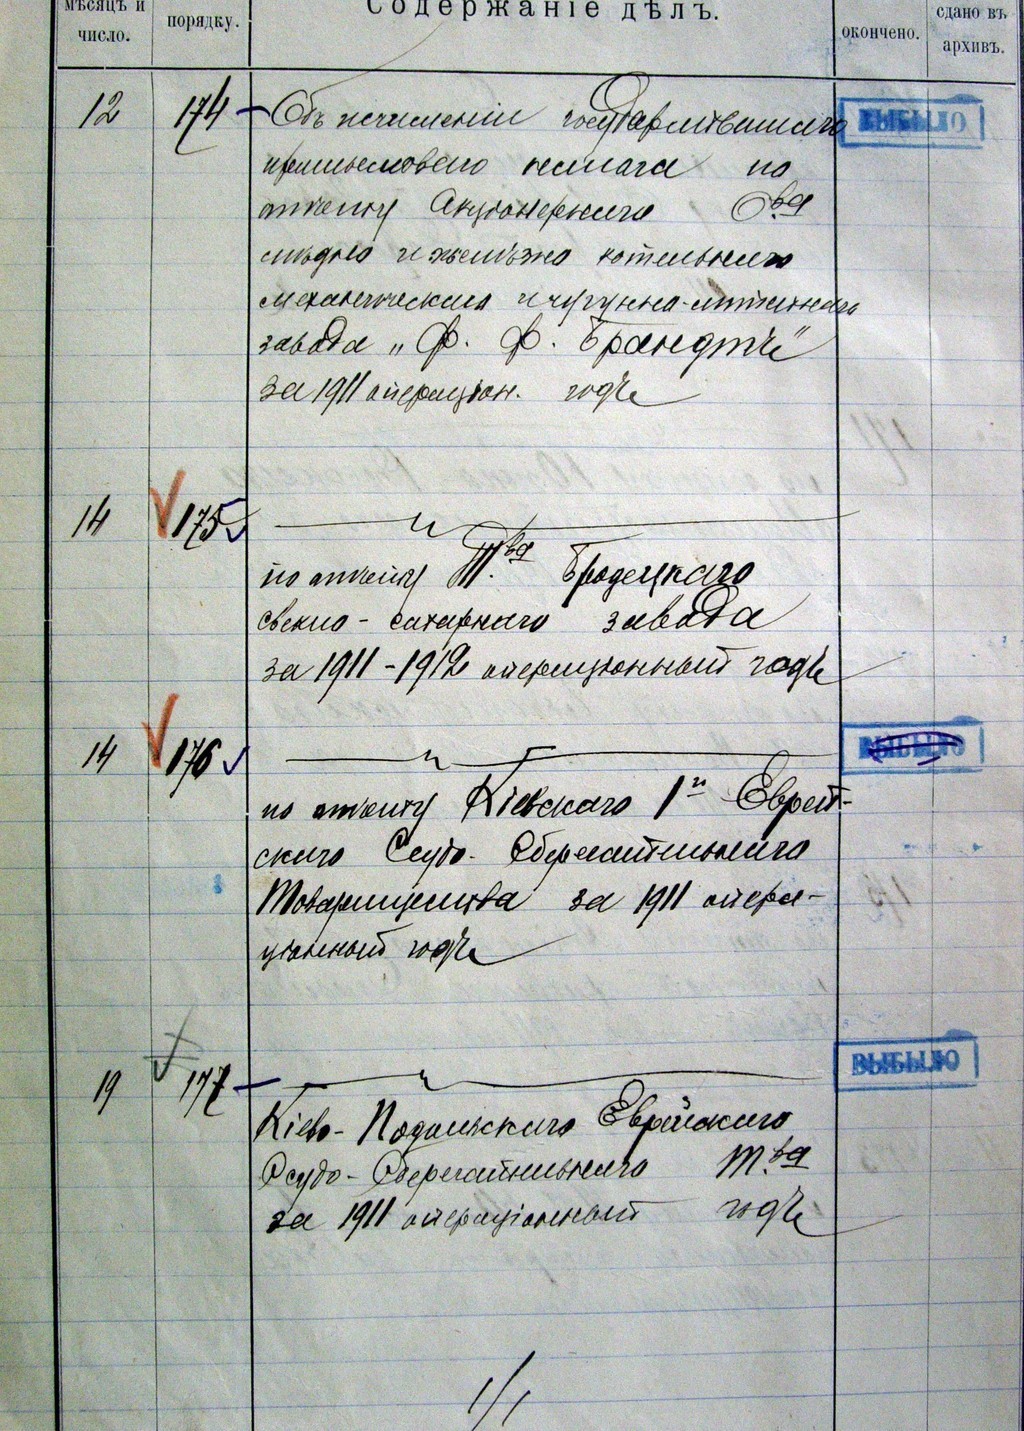 мѣсяцъ и
число.
порядку.
Содержаніе дѣлъ.
окончено.
сдано въ
архивъ.
12 174 Объ исчисленіи государственнаго ВЫБЫЛО
промысловаго налога по
отчету Акціонернаго О.ва
мѣдно и желѣзно котельнаго
механическаго и чугунно-литейнаго
завода „Ф. Ф. Брандтъ“
за 1911 операціон. годъ
14 175 — „ —
по отчету Т.ва Бродецкаго
свекло-сахарнаго завода
за 1911-1912 операціонный годъ
14 176 — „ — ВЫБЫЛО
по отчету Кіевскаго 1го Еврей-
скаго Ссудо-Сберегательнаго
Товарищества за 1911 опера-
ціонный годъ
19 177 — „ — ВЫБЫЛО
Кіево-Подольскаго Еврейскаго
Ссудо-Сберегательнаго Т.ва
за 1911 операціонный годъ